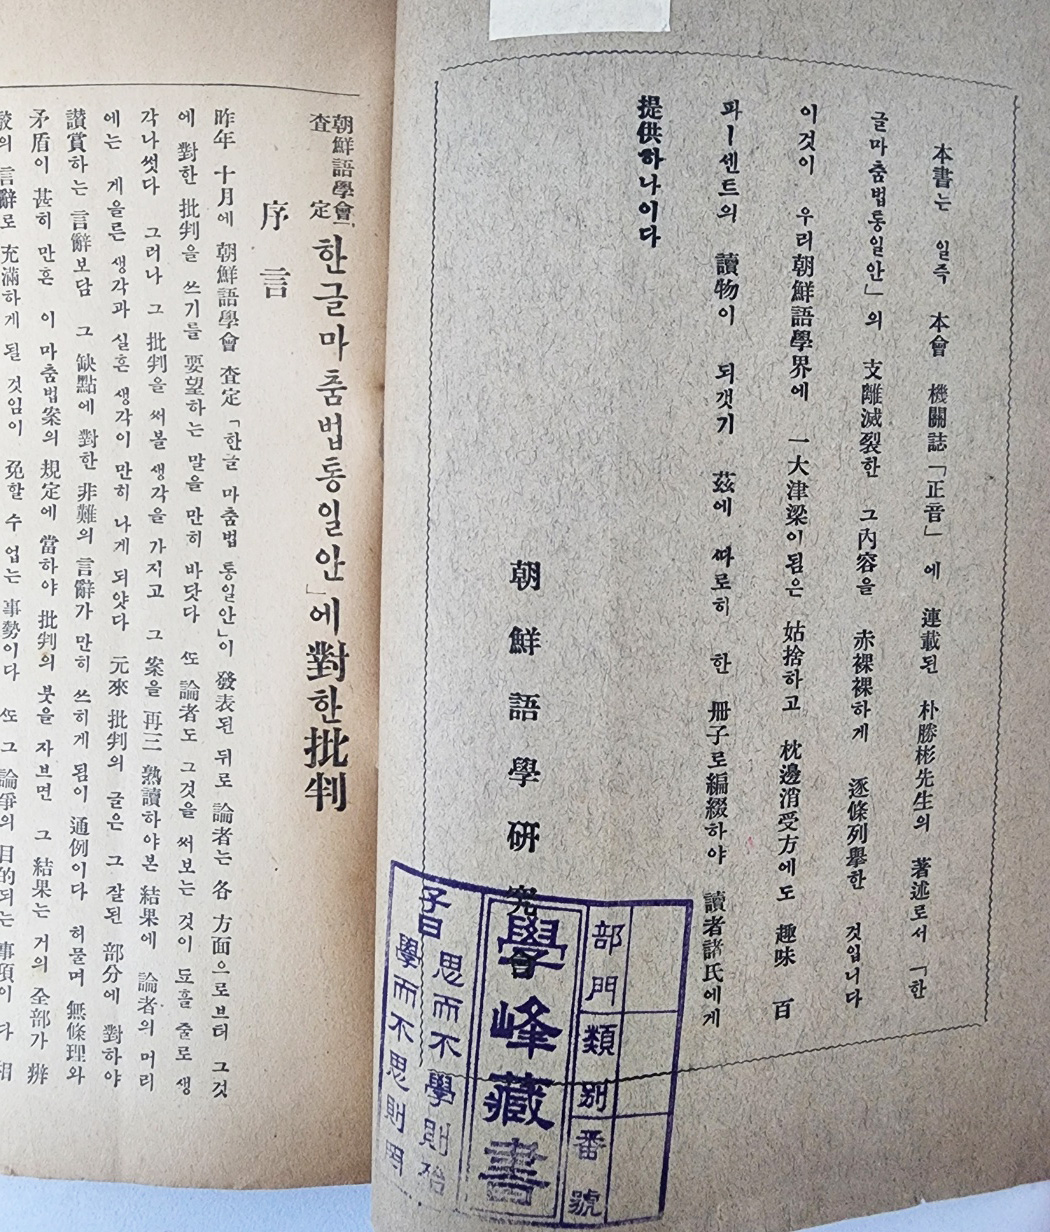 本書는 일즉 本會 機關誌「正音」에 連載된 朴勝彬先生의 著述로서 「한
글마춤법통일안」의 支離滅裂한 그內容을 赤裸裸하게 逐條列擧한 것입니다
이것이 우리朝鮮語學界에 一大津梁이됨은 姑捨하고 枕邊消受方에도 趣味 百
파ー센트의 讀物이 되갯기 玆에 ᄯᅡ로히 한 冊子로編綴하야 讀者諸氏에게
提供하나이다
朝鮮語學硏究
部門
類別
番號
學峰藏書
子曰
思而不學則殆
學而不思則罔
朝鮮語學會
査定
한글마춤법통일안」에 對한 批判
序言
昨年 十月에 朝鮮語學會 査定 「한글 마춤법 통일안」이 發表된 뒤로 論者는 各 方面으로브터 그것
에 對한 批判을 쓰기를 要望하는 말을 만히 바닷다 ᄯᅩ 論者도 그것을 써보는 것이 됴흘 줄로 생
각나썻다 그러나 그 批判을 써볼 생각을 가지고 그 案을 再三 熟讀하야본 結果에 論者의 머리
에는 게을른 생각과 실흔 생각이 만히 나게 되얏다 元來 批判의 글은 그 잘된 部分에 對하야
讚賞하는 言辭보담 그 缺點에 對한 非難의 言辭가 만히 쓰히게 됨이 通例이다 허물며 無條理와
矛盾이 甚히 만흔 이 마춤법案의 規定에 當하야 批判의 붓을 자브면 그 結果는 거의 全部가 辨
의 言辭로 充滿하게 될 것임이 免할 수 업는 事勢이다 ᄯᅩ 그 論爭의 目的되는 事項이 다